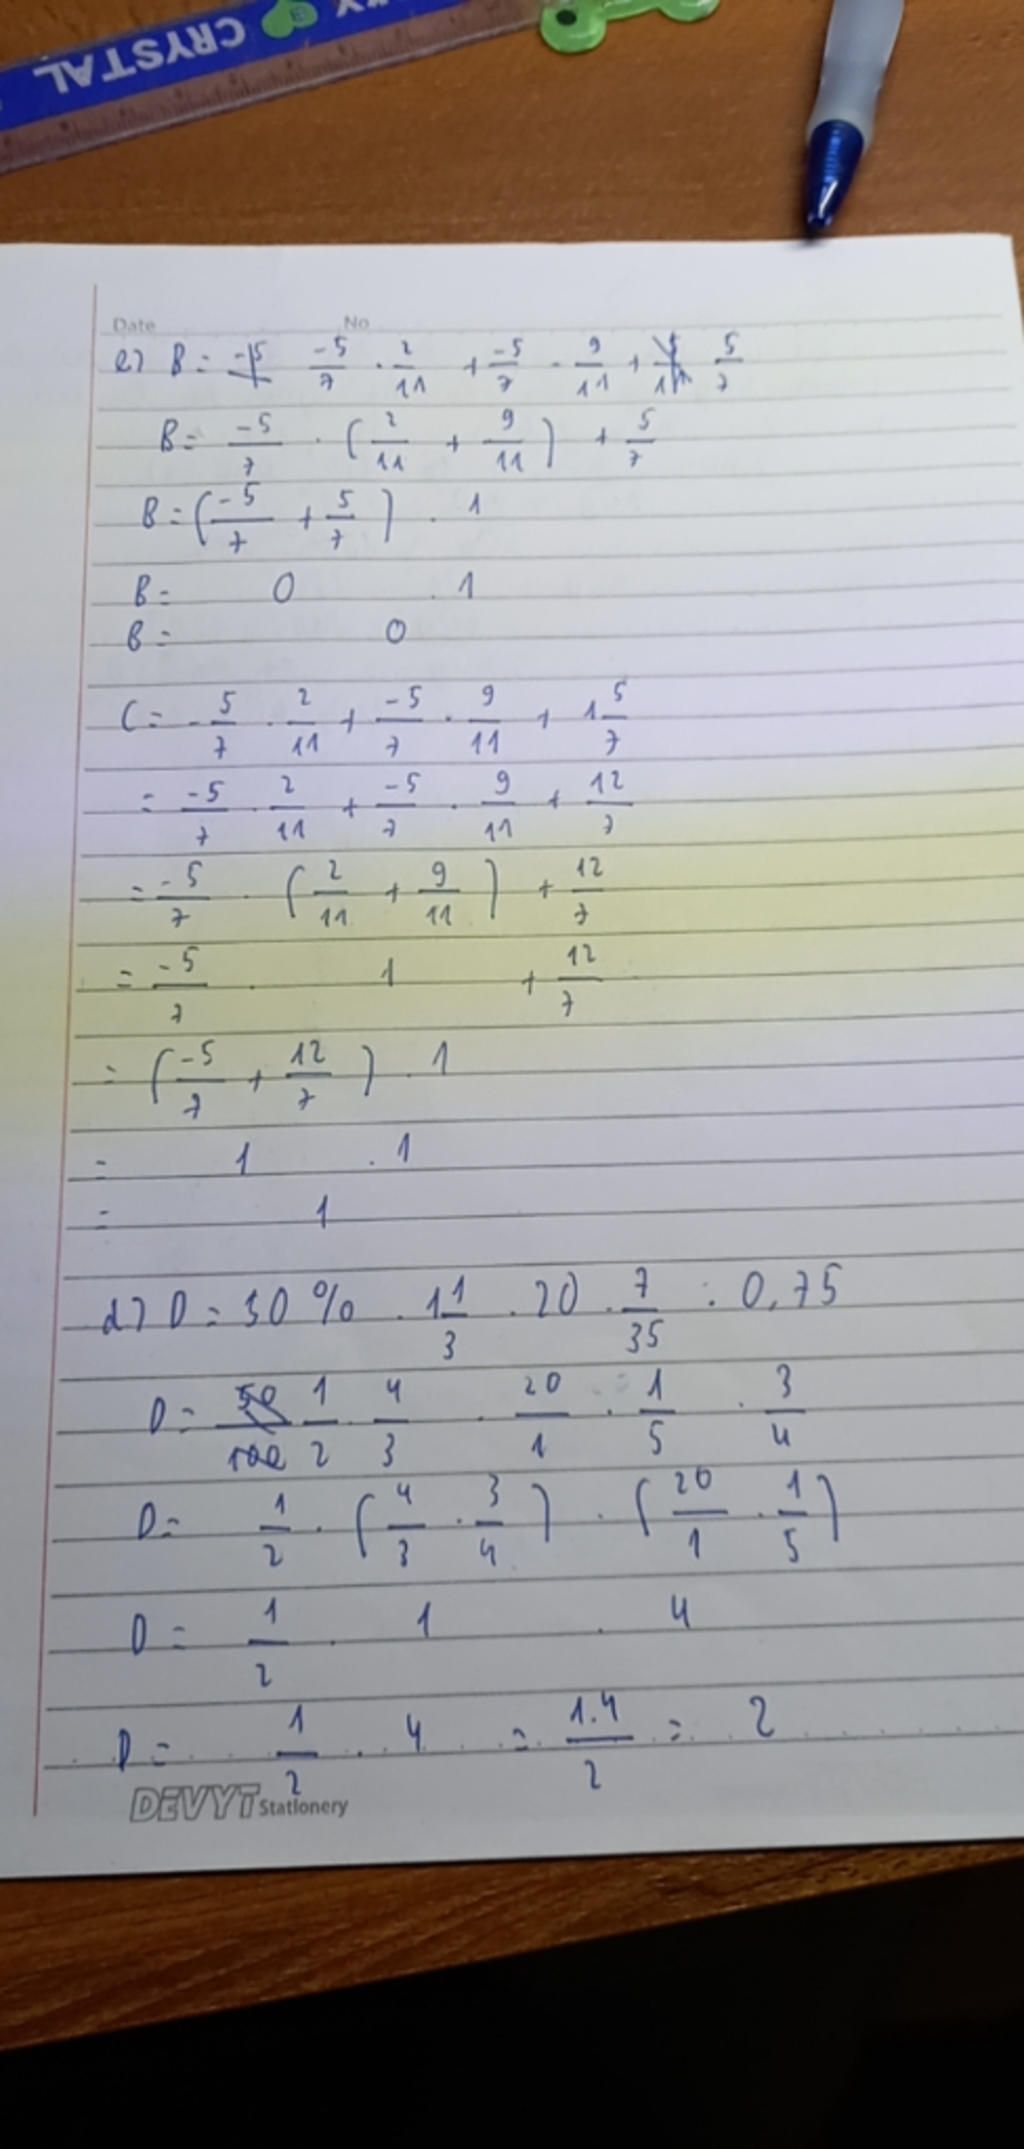 CRYSTAL
Date No
e) B = \frac{-5}{7} \cdot \frac{2}{11} + \frac{-5}{7} \cdot \frac{9}{11} + \frac{5}{7}
B = \frac{-5}{7} \cdot (\frac{2}{11} + \frac{9}{11}) + \frac{5}{7}
B = (\frac{-5}{7} + \frac{5}{7}) . 1
B = 0 . 1
B = 0
C = -\frac{5}{7} \cdot \frac{2}{11} + \frac{-5}{7} \cdot \frac{9}{11} + 1\frac{5}{7}
= \frac{-5}{7} \cdot \frac{2}{11} + \frac{-5}{7} \cdot \frac{9}{11} + \frac{12}{7}
= \frac{-5}{7} \cdot (\frac{2}{11} + \frac{9}{11}) + \frac{12}{7}
= \frac{-5}{7} . 1 + \frac{12}{7}
= (\frac{-5}{7} + \frac{12}{7}) . 1
= 1 . 1
= 1
d) D = 50 % . 1\frac{1}{3} . 20 . \frac{7}{35} : 0,75
D = \frac{1}{2} . \frac{4}{3} . \frac{20}{1} . \frac{1}{5} . \frac{3}{4}
D = \frac{1}{2} . (\frac{4}{3} . \frac{3}{4}) . (\frac{20}{1} . \frac{1}{5})
D = \frac{1}{2} . 1 . 4
D = \frac{1}{2} . 4 = \frac{1.4}{2} = 2
DEVYT Stationery